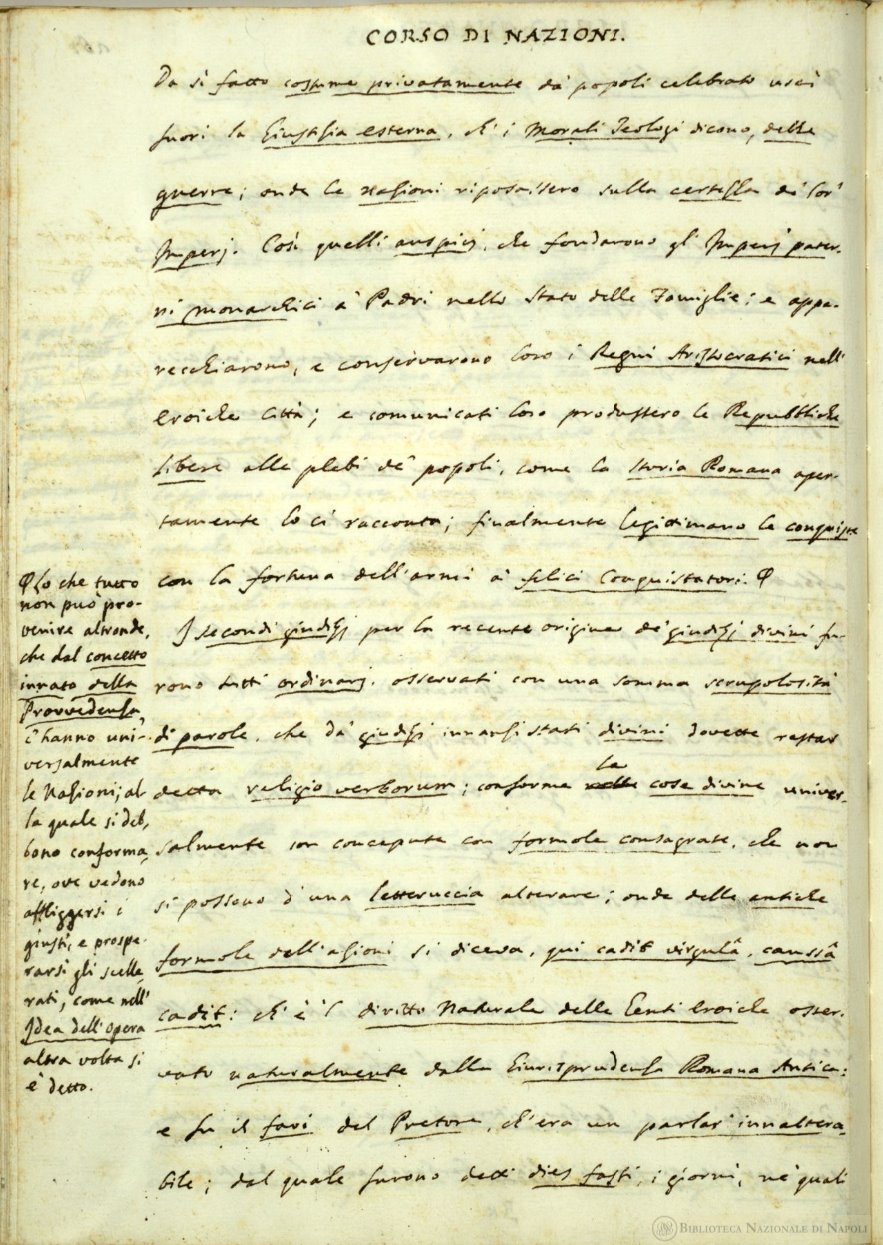 CORSO DI NAZIONI.
Da sì fatto costume privatamente da' popoli celebrato uscì
fuori la Giustizia esterna, ch'i Morali Teologi dicono, delle
guerre; onde le nazioni riposassero sulla certezza de' lor'
Imperj. Così quelli auspicj, che fondarono gl'Imperj pater-
ni monarchici a' Padri nello Stato delle Famiglie; e appa-
recchiarono, e conservarono loro i Regni Aristocratici nell'
eroiche Città; e comunicati loro produssero le Repubbliche
libere alle plebi de' popoli, come la Storia Romana aper-
tamente lo ci racconta; finalmente legittimano le conquiste
con la fortuna dell'armi a' felici Conquistatori. Φ
I secondi giudizj per la recente origine de' giudizj divini fu-
rono tutti ordinarj, osservati con una somma scrupolosità
di parole, che da' giudizj innanzi stati divini dovette restar
detta religio verborum; conforme le cose divine univer-
salmente son concepute con formole consagrate, che non
si possono d'una letteruccia alterare; onde delle antiche
formole dell'azioni si diceva, qui cadit virgulâ, caussâ
cadit: ch'è 'l diritto Naturale delle Genti eroiche osser-
vato naturalmente dalla Giurisprudenza Romana Antica:
e fu il fari del Pretore, ch'era un parlar' innaltera-
bile; dal quale furono detti dies fasti, i giorni, ne' quali
Φ Lo che tutto
non può pro-
venire altronde,
che dal concetto
innato della
Provvedenza,
c'hanno uni-
versalmente
le Nazioni; al-
la quale si deb-
bono conforma-
re, ove vedono
affliggersi i
giusti, e prospe-
rarsi gli scelle-
rati, come nell'
Idea dell'Opera
altra volta si
è detto.
BIBLIOTECA NAZIONALE DI NAPOLI